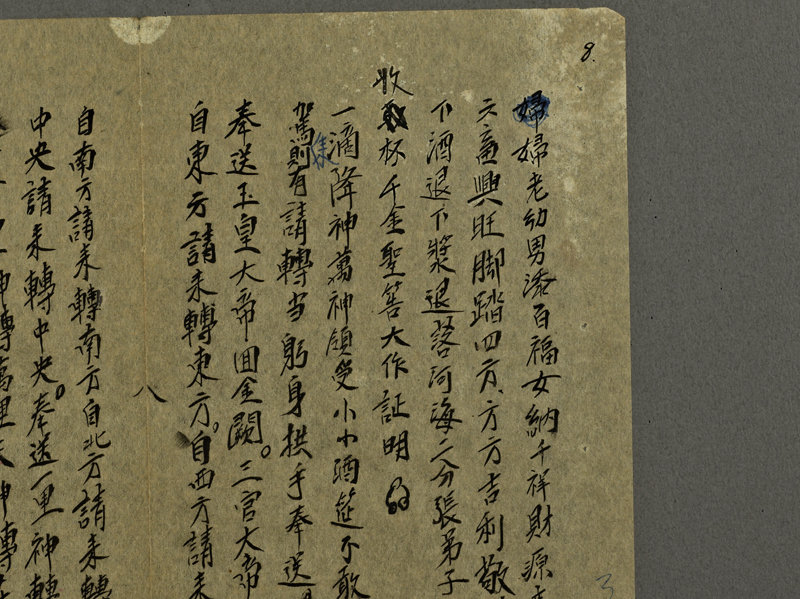 8.
婦老幼男添百福女納千祥財源
六畜興旺脚踏四方、方方吉利敬
下酒退下漿退落河海二分張弟子
收杯千金聖筶大作証明
一滴降神萬神領受小小酒筵不敢
駕則有請轉当躬身拱手奉送
奉送玉皇大帝囬金闕。三官大帝
自東方請来轉東方。自西方請来
八
自南方請来轉南方自北方請来轉
中央請来轉中央。奉送一里神轉
神轉萬里天神轉
3